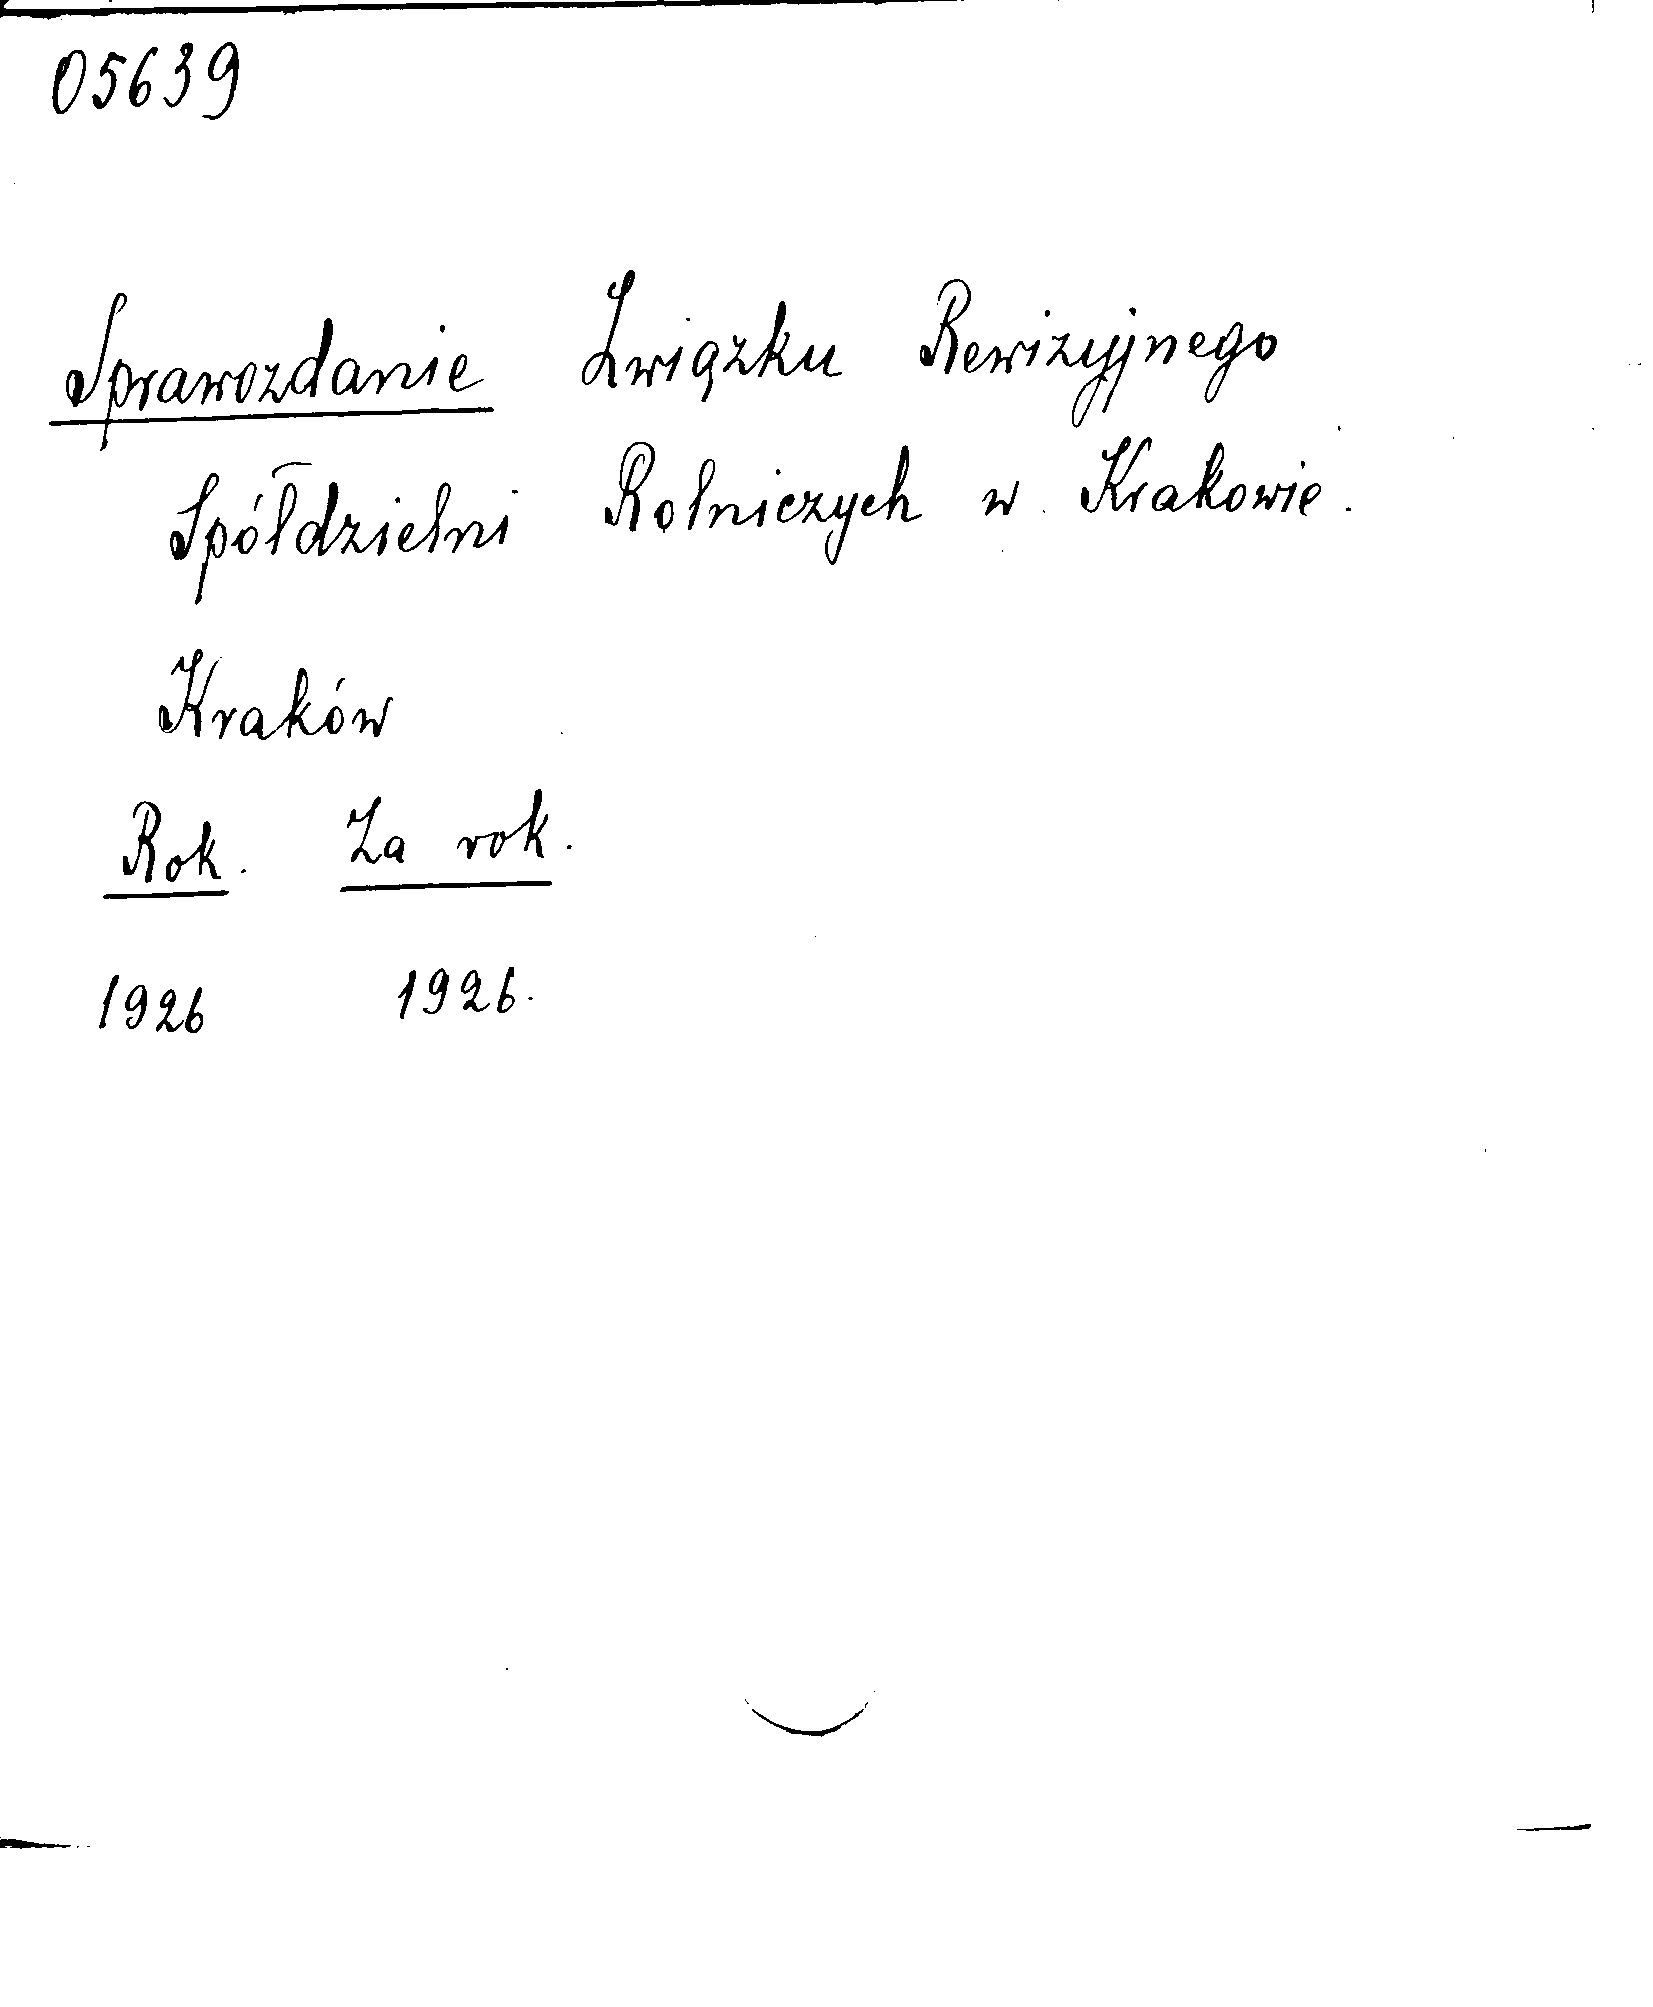 05639
Sprawozdanie Związku Rewizyjnego
Spółdzielni Rolniczych w Krakowie.
Kraków
Rok. Za rok.
1926 1926.